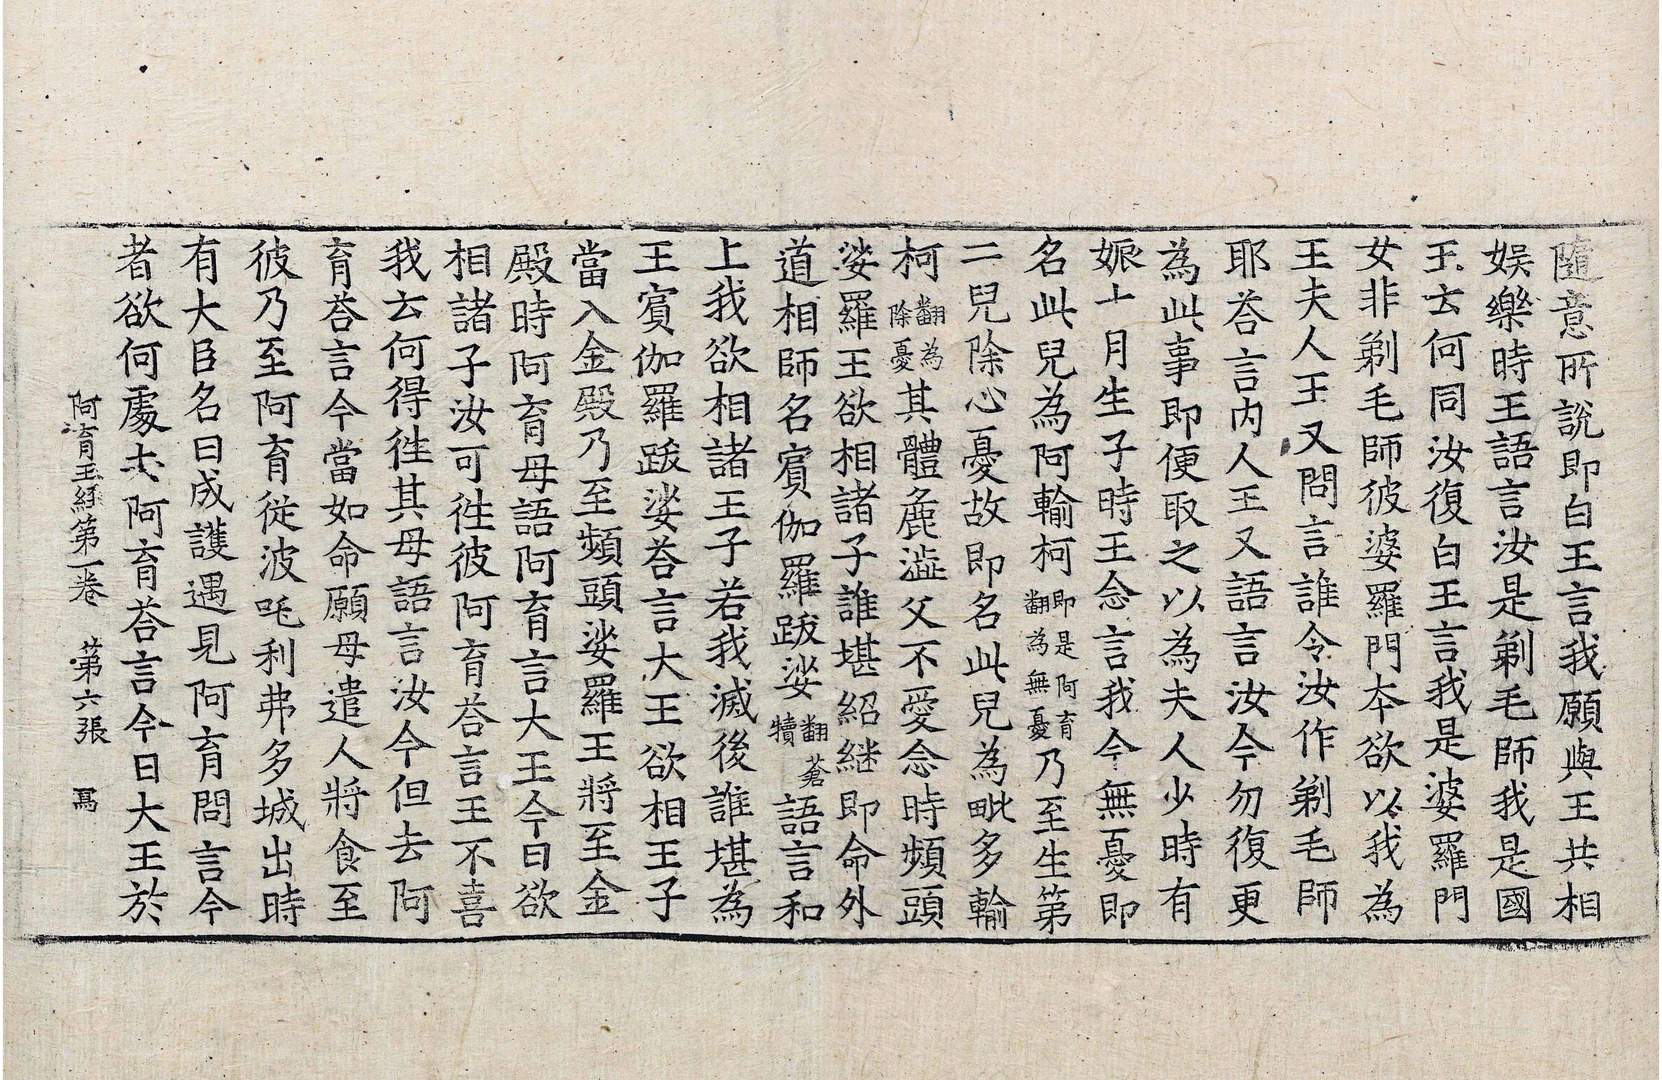 隨意所說即白王言我願與王共相
娛樂時王語言汝是剃毛師我是國
王云何同汝復白王言我是婆羅門
女非剃毛師彼婆羅門本欲以我為
王夫人王又問言誰令汝作剃毛師
耶荅言內人王又語言汝今勿復更
為此事即便取之以為夫人少時有
娠十月生子時王念言我今無憂即
名此兒為阿輸柯即是阿育翻為無憂乃至生第
二兒除心憂故即名此兒為毗多輸
柯翻為除憂其體麁澁父不愛念時頻頭
娑羅王欲相諸子誰堪紹継即命外
道相師名賓伽羅跋娑翻蒼犢語言和
上我欲相諸王子若我滅後誰堪為
王賓伽羅跋娑荅言大王欲相王子
當入金殿乃至頻頭娑羅王將至金
殿時阿育母語阿育言大王今日欲
相諸子汝可徃彼阿育荅言王不喜
我云何得徃其母語言汝今但去阿
育荅言今當如命願母遣人將食至
彼乃至阿育從波吒利弗多城出時
有大臣名曰成護遇見阿育問言今
者欲何處去阿育荅言今日大王於
阿育王經第一卷 第六張 寫